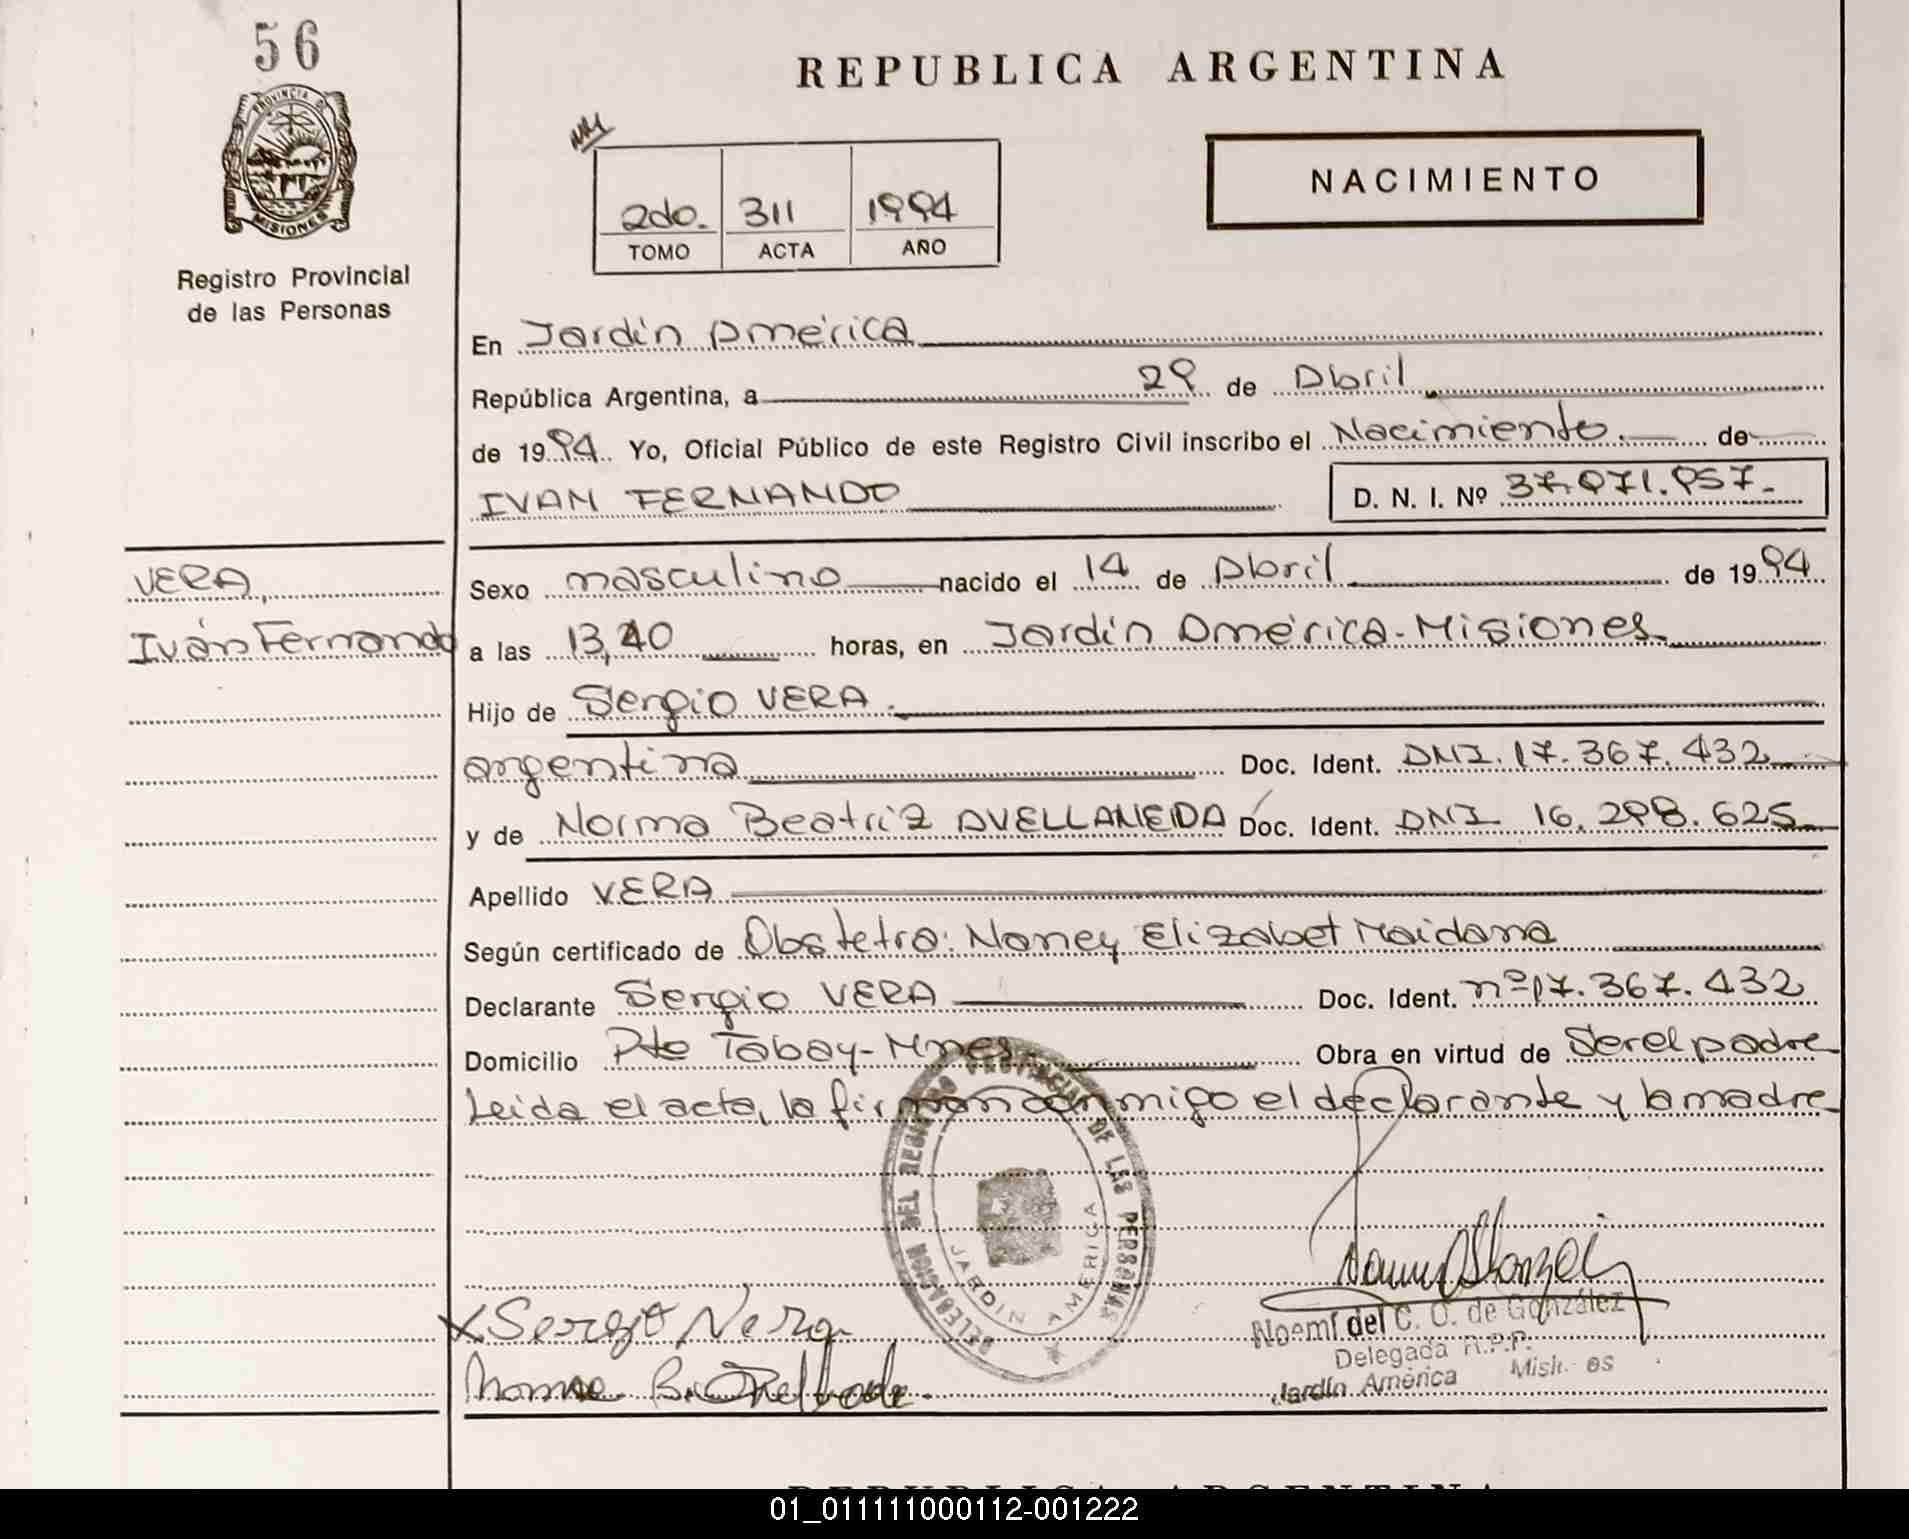 56
REPUBLICA ARGENTINA
PROVINCIA DE
MISIONES
Registro Provincial
de las Personas
NACIMIENTO
2do. 311 1994
TOMO ACTA AÑO
En Jardín América
República Argentina, a 29 de Abril
de 1994. Yo, Oficial Público de este Registro Civil inscribo el Nacimiento. de
IVAN FERNANDO
D. N. I. Nº 37.071.957.-
VERA,
Iván Fernando
Sexo masculino nacido el 14 de Abril de 1994
a las 13,40 horas, en Jardín América-Misiones
Hijo de Sergio VERA.
argentina Doc. Ident. DNI. 17.367.432
y de Norma Beatriz AVELLANEDA Doc. Ident. DNI 16.298.625
Apellido VERA
Según certificado de Obstetra: Nancy Elizabet Maidana
Declarante Sergio VERA Doc. Ident. nº17.367.432
Domicilio Pto Tabay-Mnes. Obra en virtud de Ser el padre
Leida el acta, la firman conmigo el declarante y la madre
DELEGACION DEL REGISTRO PROVINCIAL DE LAS PERSONAS
JARDIN AMERICA
X Sergio Vera
Norma B.
Noemí del C. O. de González
Delegada R.P.P.
Jardín América
01_011111000112-001222